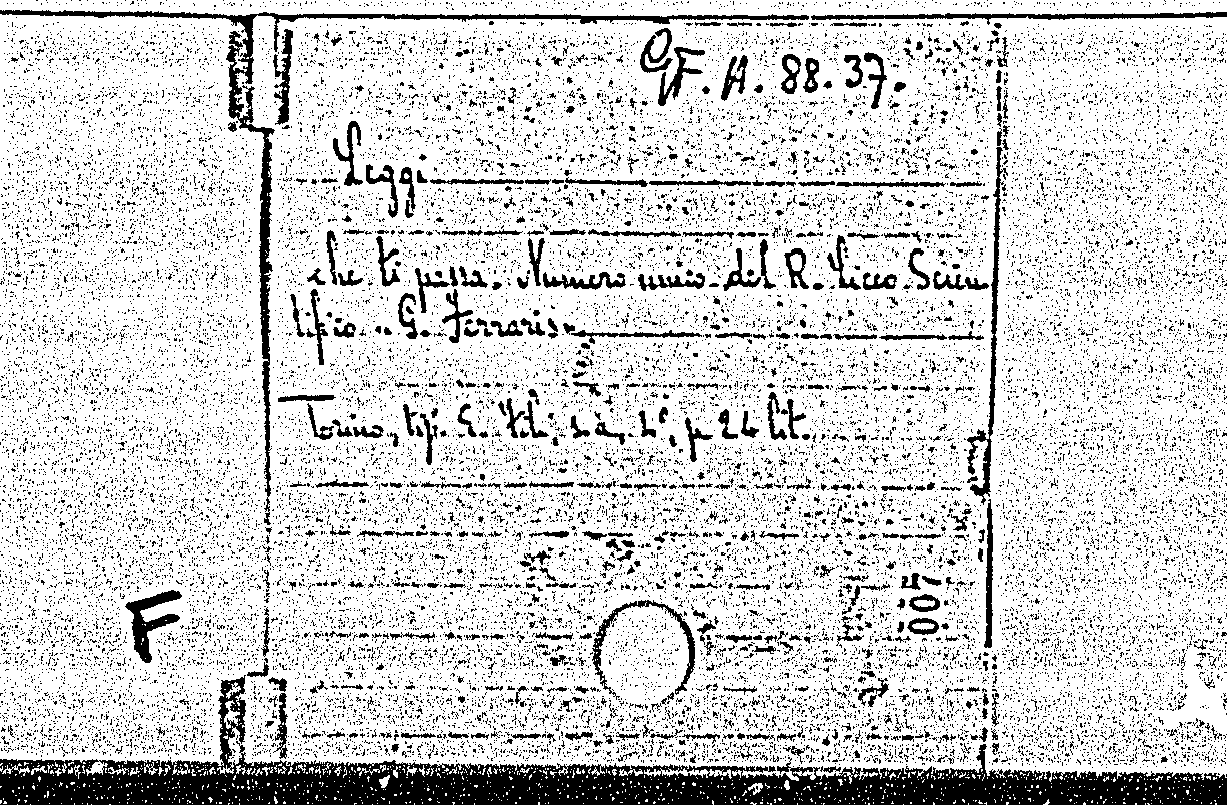 F. A. 88. 37.
Leggi
che ti passa. Numero unico del R. Liceo Scien
tifico "G. Ferraris"
Torino, tip. E. s. a, 4°, p 24 lit.
007
F